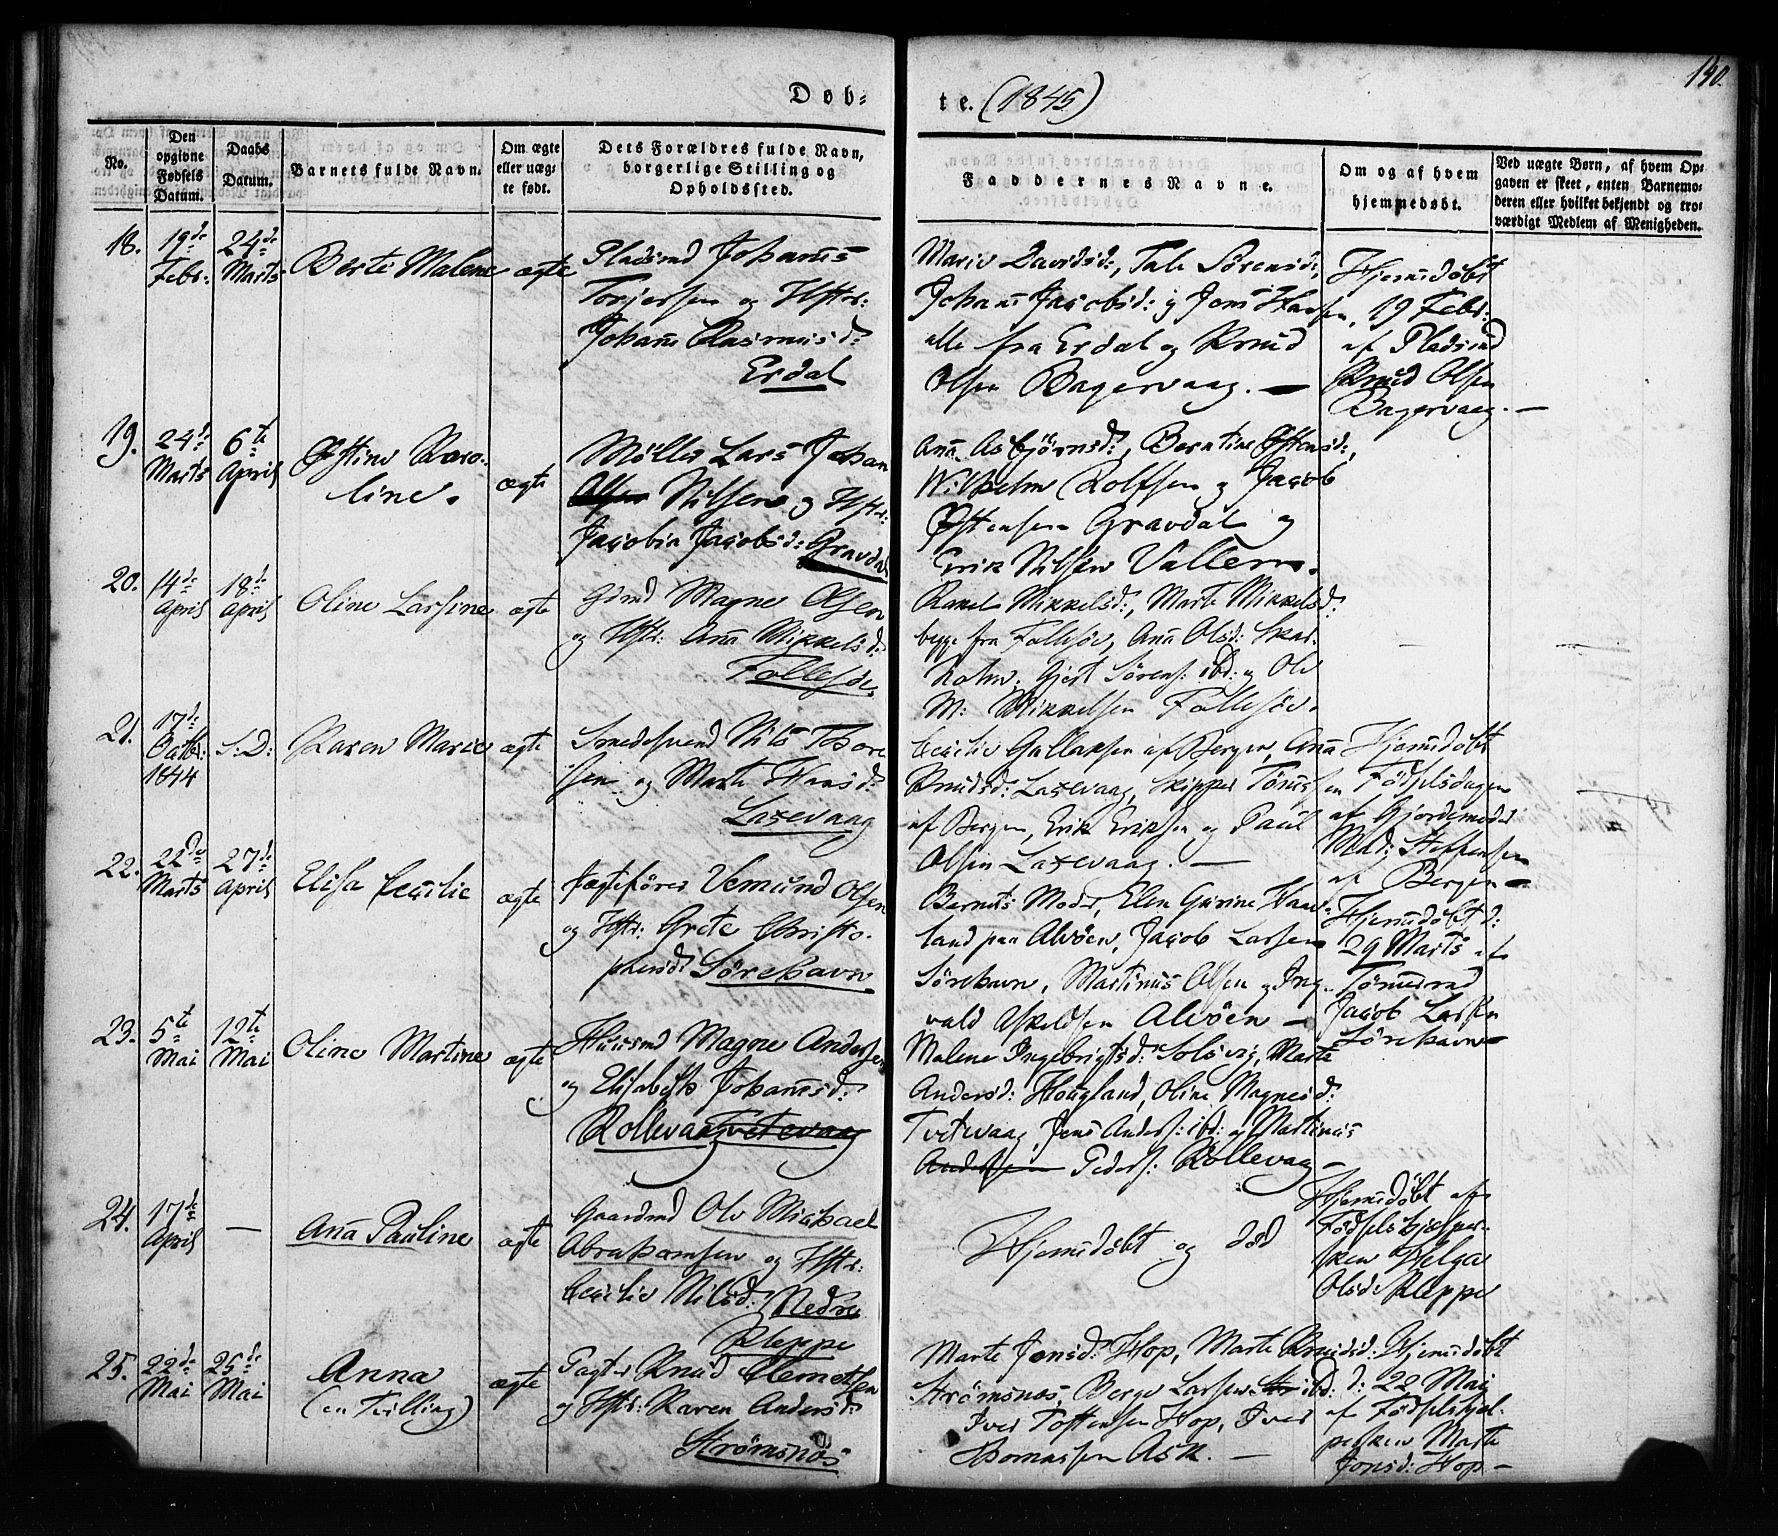 Døb-
te. (1845)
140.
No.
Den opgivne Fødsels Datum.
Daabs Datum.
Barnets fulde Navn.
Om ægte eller uæg-
te født.
Dets Forældres fulde Navn,
borgerlige Stilling og
Opholdssted.
Faddernes Navne.
Om og af hvem
hjemmedøbt.
Ved uægte Børn, af hvem Op-
gaven er skeet, enten Barnemo-
deren eller hvilket bekjendt og tro-
værdigt Medlem af Menigheden.
18.
19de
Febr:
24de
Marts
Berte Malene
ægte
Pladsmd Johannes
Torjersen og Hstr:
Johanne Rasmusd:
Erdal
Marie Davidsd:, Tale Sørensd:,
Johanne Jacobsd: og Jens Hansen,
alle fra Erdal og Knud
Olsen Bagervaag. —
Hjemmedøbt
19 Febr:
af Pladsmd
Knud Olsen
Bagervaag. —
19.
24de
Marts
6te
April
Østine Karo-
line.
ægte
Møller Lars Johan
Nilsen og Hstr:
Jacobia Jacobsd: Gravdal
Anna Asbjørnsd:, Berntine Østensd:,
Wilhelm Rolfsen og Jacob
Østensen Gravdal og
Erik Nilsen Vallem.
20.
14de
April
18de
April
Oline Larsine
ægte
Gdmd Magne Olsen
og Hstr: Anna Mikkelsd:
Follesøe
Rakel Mikkelsd:, Marte Mikkelsd:
begge fra Follesøe, Anna Olsd: Skar-
holm, Gjert Sørens: ibd: og Ole
M: Mikkelsen Follesøe.
—
21.
17de
Octbr:
1844
S.D:
Karen Marie
ægte
Smedsvend Nils Thore
sen og Marte Hansd:
Laxevaag
Cecilie Gullaksen af Bergen, Anna
Knudsd: Laxevaag, Skipper Tønnessen
af Bergen, Erik Eriksen og Paul
Olsen Laxevaag. —
Hjemmedøbt
Fødselsdagen
af Gjordemoder
Mad: Steffensen
af Bergen —
22.
22de
Marts
27de
April
Elisa Cecilie
ægte
Jægtefører Vemund Olsen
og Hstr: Grete Christo-
phersd: Sørehavn
Barnets Moder, Elen Gurine Haa-
land paa Alvøen, Jacob Larsen
Sørehavn, Martinus Olsen og Ing-
vald Askeldsen Alvøen —
Hjemmedøbt d:
29 Marts af
Tømmermd
Jacob Larsen
Sørehavn —
23.
5te
Mai
12te
Mai
Oline Martine
ægte
Huusmd Magne Andersen
og Elisabeth Johannesd:
Rollevaag Tvetevaag
Malene Ingebrigtsd: Solsvig, Marte
Andersd: Hougland, Oline Magnesd:
Tvetevaag Jens Anders: ibd: og Martinus
Andersen Peders: Rollevaag —
24.
17de
April
—
Anna Pauline
ægte
Gaardmd Ole Michael
Abrahamsen og Hstr:
Cecilie Nilsd: Nedre
Kleppe
Hjemmedøbt og død
Hjemmedøbt af
Fødselshjelper-
sken Helga
Olsd: Kleppe
25.
22de
Mai
25de
Mai
Anna
(en Tvilling)
ægte
Pagter Knud Clemetsen
og Hstr: Karen Andersd:
Strømsnæs
Marte Jonsd: Hop, Marte Knudsd:
Strømsnæs, Berge Larsen Str ibd:
Iver Tostensen Hop, Iver
Thomassen Ask. —
Hjemmedøbt
d: 22 Mai
af Fødselshjel-
persken Marte
Jonsd: Hop —